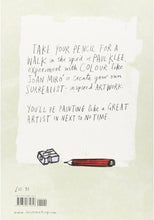 TAKE YOUR PENCIL FOR A
WALK in the spirit of PAUL KLEE,
experiment with COLOUR like
JOAN MIRÓ & create your own
SURREALIST-inspired ARTWORK.
YOU'LL BE PAINTING like a GREAT
ARTIST IN NEXT TO NO TIME.